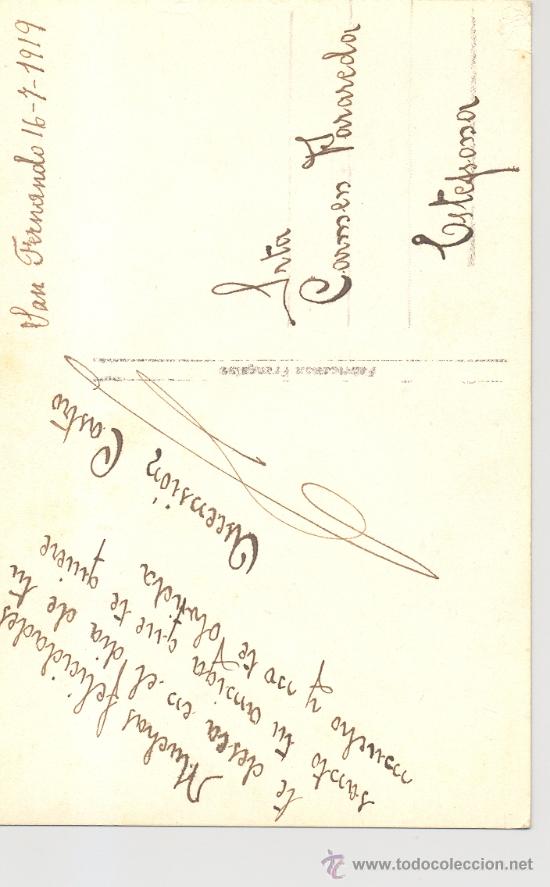 San Fernando 16-7-1919
Muchas felicidades
te desea en el dia de tu
santo tu amiga que te quiere
mucho y no te olvida
Ascension Castro
Fabrication Française
Srta
Carmen
Estepona
www.todocoleccion.net